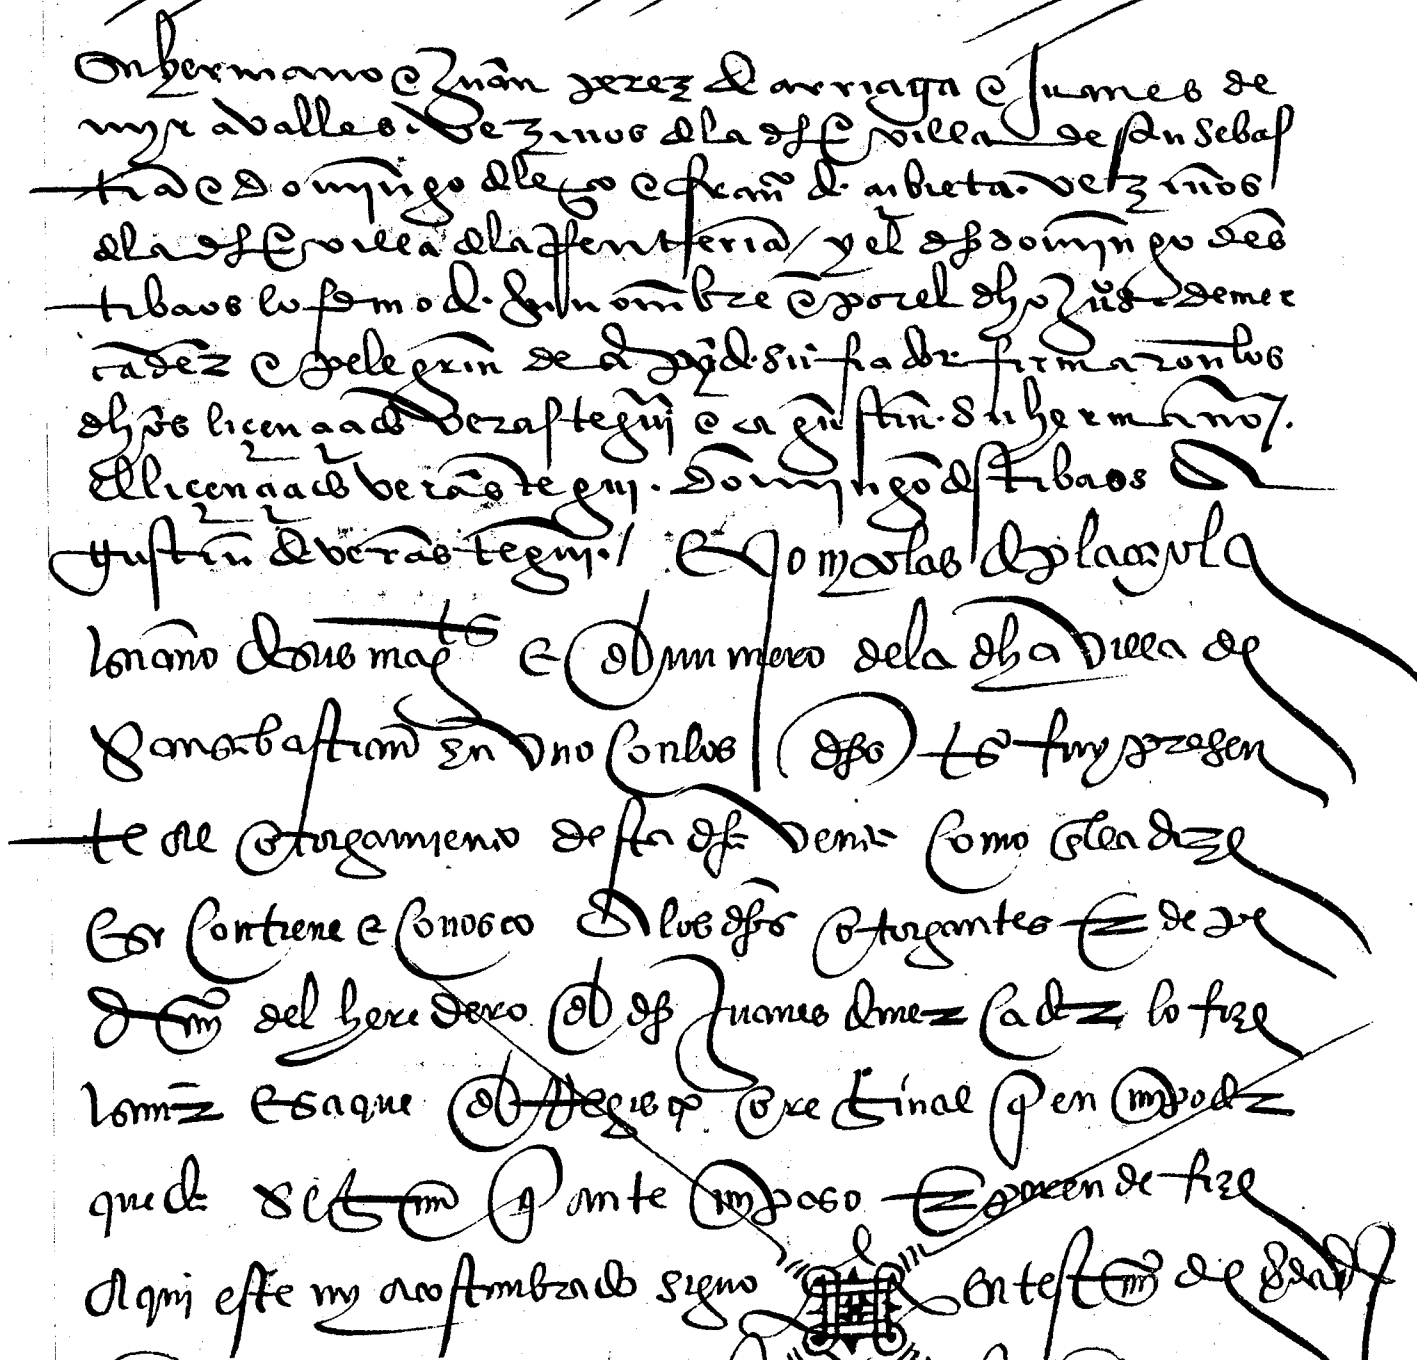 su hermano e Juan perez de arriaga e Juanes de
myravalles vezinos de la dha villa de san sebas
tian e domingo de leço e franco de arbieta vezinos
de la dha villa de la Renteria / y el dho domingo des
tibaos lo firmo de su nombre e por el dho Juo de mer
cadez e pelegrin de su fiador firmaron los
dhos licençiado verastegui e agustin su hermano /.
el licençiado verastegui. domingo destibaos A
gustin de verastegui. / E yo nycolas de plaçaola
esno de sus mags e del numero de la dha villa de
San sebastian en vno con los dhos ts fuy presen
te al otorgamiento desta dha venta como en ella dize
e se contiene e conosco a los dhos otorgantes e de pe
dimio del heredero del dho Juanes de mercadez lo fize
e saque del Registro oreginal q en mi poder
queda segund q ante mi paso e por ende fize
Aqui este my acostunbrado signo en testimo de verdad